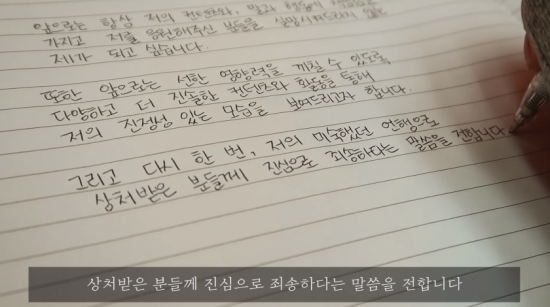 앞으로는 항상 저의 컨텐츠와, 말과 행동에
가지고 저를 응원해주신 분들을 실망시켜드리지 않는
제가 되고 싶습니다.
또한 앞으로는 선한 영향력을 끼칠 수 있도록
다양하고 더 진솔한 컨텐츠와 활동을 통해
저의 진정성 있는 모습을 보여드리고자 합니다.
그리고 다시 한 번, 저의 미숙했던 언행으로
상처받은 분들께 진심으로 죄송하다는 말씀을 전합니다
상처받은 분들께 진심으로 죄송하다는 말씀을 전합니다